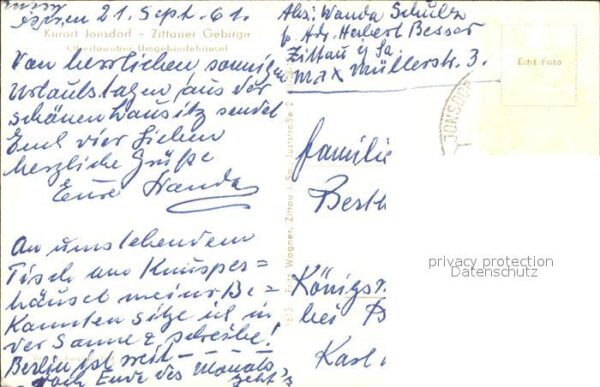 21. Sept. 61.
Kurort Jonsdorf - Zittauer Gebirge
Oberlausitzer Umgebindehäusel
Von herrlichen sonnigen
Urlaubstagen aus der
schönen Lausitz sendet
Euch vier Lieben
herzliche Grüße
Eure Wanda
An umstehendem
Tisch am Knusper=
häusel meiner Be=
kannten sitze ich in
der Sonne & schreibe!
Berlin ist weit
Ende des Monats
geht's
Abs: Wanda Schulz
b. Adr. Herbert Besser
Zittau i. Sa.
Max Müllerstr. 3.
Echt Foto
JONSDORF
Fritz Wagner, Zittau i. Sa.
Familie
Berth
Königs
bei B
Karl
privacy protection
Datenschutz